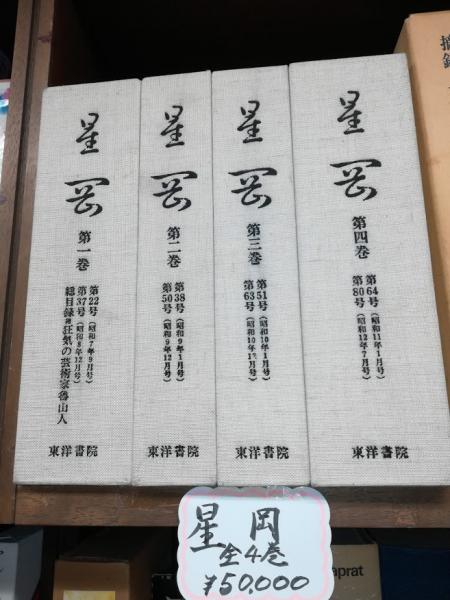 星岡
第一巻
第22号(昭和7年9月号)
第37号(昭和8年12月号)
総目録・狂気の芸術家魯山人
東洋書院
星岡
第二巻
第38号(昭和9年1月号)
第50号(昭和9年12月号)
東洋書院
星岡
第三巻
第51号(昭和10年1月号)
第63号(昭和10年12月号)
東洋書院
星岡
第四巻
第64号(昭和11年1月号)
第80号(昭和12年7月号)
東洋書院
星岡
全4巻
¥50,000
aprat